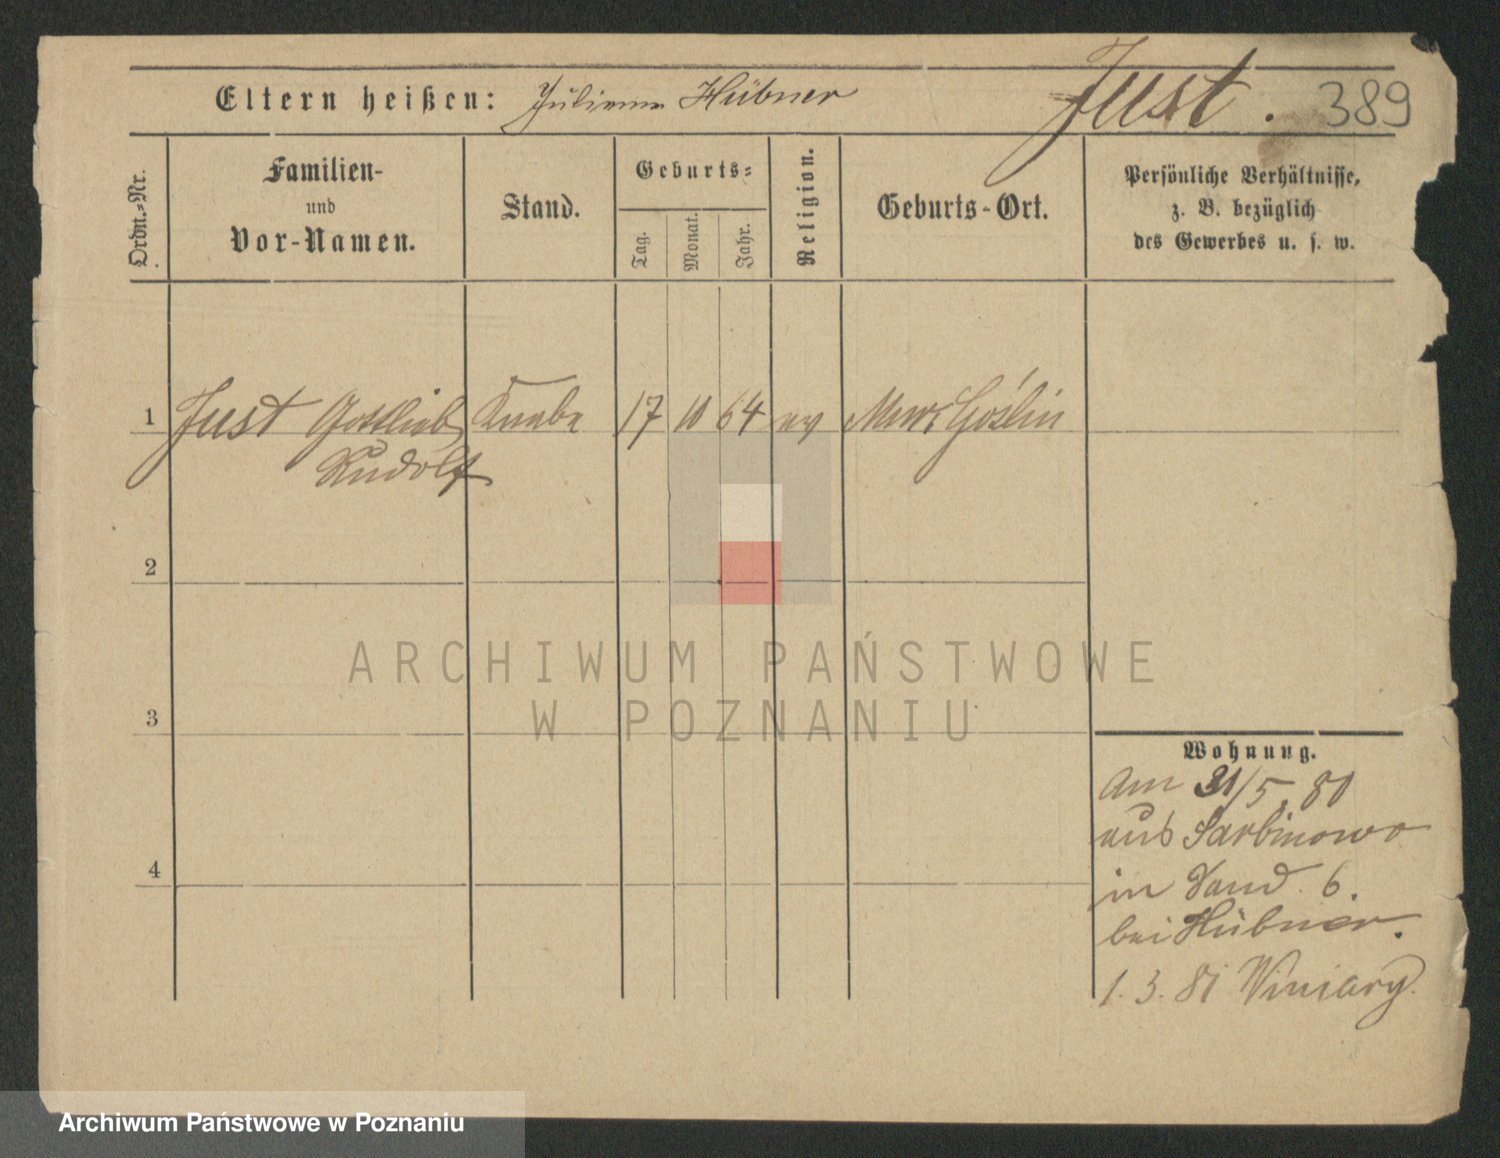 Eltern heißen: Julianna Hübner Just. 389
Ordn.-Nr.
Familien-
und
Vor-Namen.
Stand.
Geburts-
Tag.
Monat.
Jahr.
Religion.
Geburts-Ort.
Persönliche Verhältnisse,
z. B. bezüglich
des Gewerbes u. s. w.
1 Just Gottlieb Knabe 17 10 64 ev Mur. Goslin
Rudolf
2
3
4
Wohnung.
Am 31/5 80
aus Sarbinowo
in Sand 6.
bei Hübner.
1. 3. 81 Winiary.
ARCHIWUM PAŃSTWOWE
W POZNANIU
Archiwum Państwowe w Poznaniu